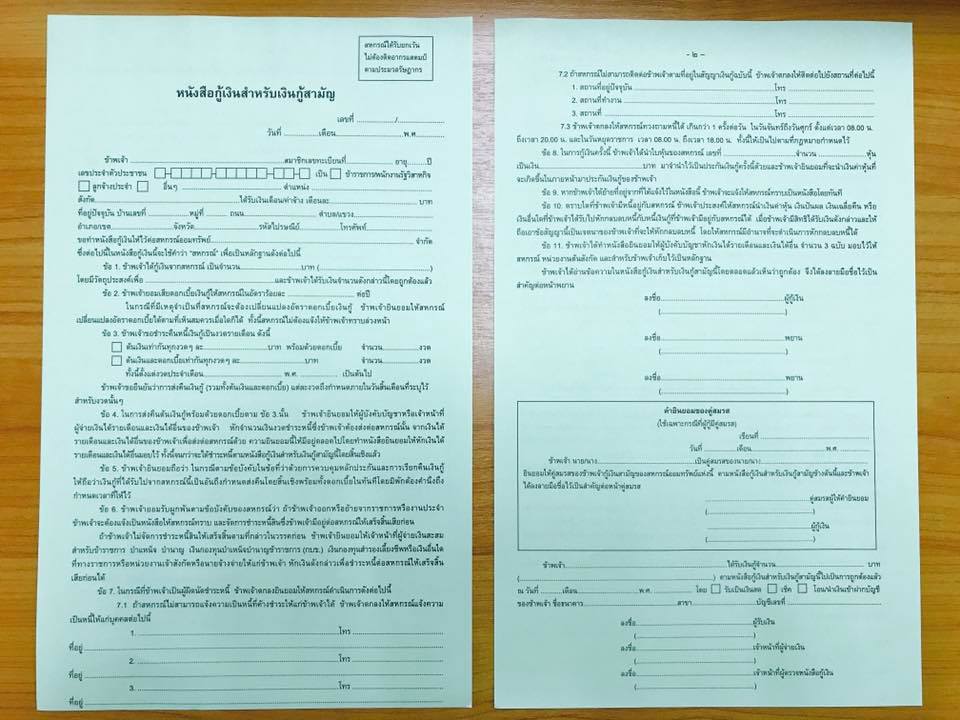 สหกรณ์ได้รับยกเว้น
ไม่ต้องติดอากรแสตมป์
ตามประมวลรัษฎากร
หนังสือกู้เงินสำหรับเงินกู้สามัญ
เลขที่ ............../..................
วันที่ ..............เดือน............................พ.ศ...............
ข้าพเจ้า ............................................................สมาชิกเลขทะเบียนที่....................... อายุ..........ปี
เลขประจำตัวประชาชน เป็น ข้าราชการ/พนักงานรัฐวิสาหกิจ
ลูกจ้างประจำ อื่นๆ ................................ตำแหน่ง .............................................................
สังกัด..................................................ได้รับเงินเดือน/ค่าจ้าง เดือนละ............................................ บาท
ที่อยู่ปัจจุบัน บ้านเลขที่ ...............หมู่ที่ ......... ถนน ...........................ตำบล/แขวง..............................
อำเภอ/เขต......................จังหวัด......................รหัสไปรษณีย์..................โทรศัพท์......................
ขอทำหนังสือกู้เงินให้ไว้ต่อสหกรณ์ออมทรัพย์............................................................................ จำกัด
ซึ่งต่อไปนี้ในหนังสือกู้เงินนี้จะใช้คำว่า "สหกรณ์" เพื่อเป็นหลักฐานดังต่อไปนี้
ข้อ 1. ข้าพเจ้าได้กู้เงินจากสหกรณ์ เป็นจำนวน.......................บาท (...........................................)
โดยมีวัตถุประสงค์เพื่อ .........................................และข้าพเจ้าได้รับเงินจำนวนดังกล่าวนี้โดยถูกต้องแล้ว
ข้อ 2. ข้าพเจ้ายอมเสียดอกเบี้ยเงินกู้ให้สหกรณ์ในอัตราร้อยละ ................................. ต่อปี
ในกรณีที่มีเหตุจำเป็นที่สหกรณ์จะต้องเปลี่ยนแปลงอัตราดอกเบี้ยเงินกู้ ข้าพเจ้ายินยอมให้สหกรณ์
เปลี่ยนแปลงอัตราดอกเบี้ยได้ตามที่เห็นสมควรเมื่อใดก็ได้ ทั้งนี้สหกรณ์ไม่ต้องแจ้งให้ข้าพเจ้าทราบล่วงหน้า
ข้อ 3. ข้าพเจ้าขอชำระคืนหนี้เงินกู้เป็นงวดรายเดือน ดังนี้
ต้นเงินเท่ากันทุกงวดๆ ละ.........................บาท พร้อมด้วยดอกเบี้ย จำนวน............งวด
ต้นเงินและดอกเบี้ยเท่ากันทุกงวดๆ ละ..........................บาท จำนวน............งวด
ทั้งนี้ตั้งแต่งวดประจำเดือน............................... พ.ศ. .................. เป็นต้นไป
ข้าพเจ้าขอยืนยันว่าการส่งคืนเงินกู้ (รวมทั้งต้นเงินและดอกเบี้ย) แต่ละงวดถึงกำหนดภายในวันสิ้นเดือนที่ระบุไว้
สำหรับงวดนั้นๆ
ข้อ 4. ในการส่งคืนต้นเงินกู้พร้อมด้วยดอกเบี้ยตาม ข้อ 3.นั้น ข้าพเจ้ายินยอมให้ผู้บังคับบัญชาหรือเจ้าหน้าที่
ผู้จ่ายเงินได้รายเดือนและเงินได้อื่นของข้าพเจ้า หักจำนวนเงินงวดชำระหนี้ซึ่งข้าพเจ้าต้องส่งต่อสหกรณ์นั้น จากเงินได้
รายเดือนและเงินได้อื่นของข้าพเจ้าเพื่อส่งต่อสหกรณ์ด้วย ความยินยอมนี้ให้มีอยู่ตลอดไปโดยทำหนังสือยินยอมให้หักเงินได้
รายเดือนและเงินได้อื่นมอบไว้ ทั้งนี้จนกว่าจะได้ชำระหนี้ตามหนังสือกู้เงินสำหรับเงินกู้สามัญนี้โดยสิ้นเชิงแล้ว
ข้อ 5. ข้าพเจ้ายินยอมถือว่า ในกรณีตามข้อบังคับในข้อที่ว่าด้วยการควบคุมหลักประกันและการเรียกคืนเงินกู้
ให้ถือว่าเงินกู้ที่ได้รับไปจากสหกรณ์นี้เป็นอันถึงกำหนดส่งคืนโดยสิ้นเชิงพร้อมทั้งดอกเบี้ยในทันทีโดยมิพักต้องคำนึงถึง
กำหนดเวลาที่ให้ไว้
ข้อ 6. ข้าพเจ้ายอมรับผูกพันตามข้อบังคับของสหกรณ์ว่า ถ้าข้าพเจ้าออกหรือย้ายจากราชการหรืองานประจำ
ข้าพเจ้าจะต้องแจ้งเป็นหนังสือให้สหกรณ์ทราบ และจัดการชำระหนี้สินซึ่งข้าพเจ้ามีอยู่ต่อสหกรณ์ให้เสร็จสิ้นเสียก่อน
ถ้าข้าพเจ้าไม่จัดการชำระหนี้สินให้เสร็จสิ้นตามที่กล่าวในวรรคก่อน ข้าพเจ้ายินยอมให้เจ้าหน้าที่ผู้จ่ายเงินสะสม
สำหรับข้าราชการ บำเหน็จ บำนาญ เงินกองทุนบำเหน็จบำนาญข้าราชการ (กบข.) เงินกองทุนสำรองเลี้ยงชีพหรือเงินอื่นใด
ที่ทางราชการหรือหน่วยงานเจ้าสังกัดหรือนายจ้างจ่ายให้แก่ข้าพเจ้า หักเงินดังกล่าวเพื่อชำระหนี้ต่อสหกรณ์ให้เสร็จสิ้น
เสียก่อนได้
ข้อ 7. ในกรณีที่ข้าพเจ้าเป็นผู้ผิดนัดชำระหนี้ ข้าพเจ้าตกลงยินยอมให้สหกรณ์ดำเนินการดังต่อไปนี้
7.1 ถ้าสหกรณ์ไม่สามารถแจ้งความเป็นหนี้ที่ค้างชำระให้แก่ข้าพเจ้าได้ ข้าพเจ้าตกลงให้สหกรณ์แจ้งความ
เป็นหนี้ให้แก่บุคคลต่อไปนี้
1.............................................................โทร ..........................
ที่อยู่ ......................................................................................................
2. ............................................................โทร ..........................
ที่อยู่ ......................................................................................................
3. ............................................................โทร ..........................
ที่อยู่ ......................................................................................................
- ๒ -
7.2 ถ้าสหกรณ์ไม่สามารถติดต่อข้าพเจ้าตามที่อยู่ในสัญญาเงินกู้ฉบับนี้ ข้าพเจ้าตกลงให้ติดต่อไปยังสถานที่ต่อไปนี้
1. สถานที่อยู่ปัจจุบัน .............................................โทร ...........................
2. สถานที่ทำงาน ..................................................โทร ...........................
3. สถานที่ .............................................................โทร ...........................
7.3 ข้าพเจ้าตกลงให้สหกรณ์ทวงถามหนี้ได้ เกินกว่า 1 ครั้งต่อวัน ในวันจันทร์ถึงวันศุกร์ ตั้งแต่เวลา 08.00 น.
ถึงเวลา 20.00 น. และในวันหยุดราชการ เวลา 08.00 น. ถึงเวลา 18.00 น. ทั้งนี้ให้เป็นไปตามที่กฎหมายกำหนดไว้
ข้อ 8. ในการกู้เงินครั้งนี้ ข้าพเจ้าได้นำใบหุ้นของสหกรณ์ เลขที่ ................................จำนวน .............. หุ้น
เป็นเงิน......................................บาท มาจำนำไว้เป็นประกันเงินกู้ครั้งนี้ด้วยและข้าพเจ้ายินยอมที่จะนำเงินค่าหุ้นที่
จะเกิดขึ้นในภายหน้ามาประกันเงินกู้ของข้าพเจ้า
ข้อ 9. หากข้าพเจ้าได้ย้ายที่อยู่จากที่ได้แจ้งไว้ในหนังสือนี้ ข้าพเจ้าจะแจ้งให้สหกรณ์ทราบเป็นหนังสือโดยทันที
ข้อ 10. ตราบใดที่ข้าพเจ้ามีหนี้อยู่กับสหกรณ์ ข้าพเจ้าประสงค์ให้สหกรณ์นำเงินค่าหุ้น เงินปันผล เงินเฉลี่ยคืน หรือ
เงินอื่นใดที่ข้าพเจ้าได้รับไปหักกลบลบหนี้กับหนี้เงินกู้ที่ข้าพเจ้ามีอยู่กับสหกรณ์ได้ เมื่อข้าพเจ้ามีสิทธิได้รับเงินดังกล่าวและให้
ถือเอาข้อสัญญานี้เป็นเจตนาของข้าพเจ้าที่จะให้หักกลบลบหนี้ โดยให้สหกรณ์มีอำนาจที่จะดำเนินการหักกลบลบหนี้ได้
ข้อ 11. ข้าพเจ้าได้ทำหนังสือยินยอมให้ผู้บังคับบัญชาหักเงินได้รายเดือนและเงินได้อื่น จำนวน 3 ฉบับ มอบไว้ให้
สหกรณ์ หน่วยงานต้นสังกัด และสำหรับข้าพเจ้าเก็บไว้เป็นหลักฐาน
ข้าพเจ้าได้อ่านข้อความในหนังสือกู้เงินสำหรับเงินกู้สามัญนี้โดยตลอดแล้วเห็นว่าถูกต้อง จึงได้ลงลายมือชื่อไว้เป็น
สำคัญต่อหน้าพยาน
ลงชื่อ ........................................ผู้กู้เงิน
(........................................)
ลงชื่อ ........................................พยาน
(........................................)
ลงชื่อ ........................................พยาน
(........................................)
คำยินยอมของคู่สมรส
(ใช้เฉพาะกรณีที่ผู้กู้มีคู่สมรส)
เขียนที่ ........................................
วันที่ ..........เดือน..........................พ.ศ..............
ข้าพเจ้า นาย/นาง........................................เป็นคู่สมรสของนาย/นาง........................................
ยินยอมให้คู่สมรสของข้าพเจ้ากู้เงินสามัญของสหกรณ์ออมทรัพย์แห่งนี้ ตามหนังสือกู้เงินสำหรับเงินกู้สามัญข้างต้นนี้และข้าพเจ้า
ได้ลงลายมือชื่อไว้เป็นสำคัญต่อหน้าคู่สมรส
........................................คู่สมรสผู้ให้คำยินยอม
(........................................)
........................................ผู้กู้เงิน
(........................................)
ข้าพเจ้า........................................ได้รับเงินกู้จำนวน........................................ บาท
(........................................) ตามหนังสือกู้เงินสำหรับเงินกู้สามัญนี้ไปเป็นการถูกต้องแล้ว
ณ วันที่ ........เดือน........................พ.ศ. ................ โดย รับเป็นเงินสด เช็ค โอน/นำเงินเข้าฝากบัญชี
ของข้าพเจ้า ชื่อธนาคาร........................................สาขา........................บัญชีเลขที่ ........................
ลงชื่อ ........................................ผู้รับเงิน
(........................................)
ลงชื่อ ........................................เจ้าหน้าที่ผู้จ่ายเงิน
(........................................)
ลงชื่อ ........................................เจ้าหน้าที่ผู้ตรวจหนังสือกู้เงิน
(........................................)